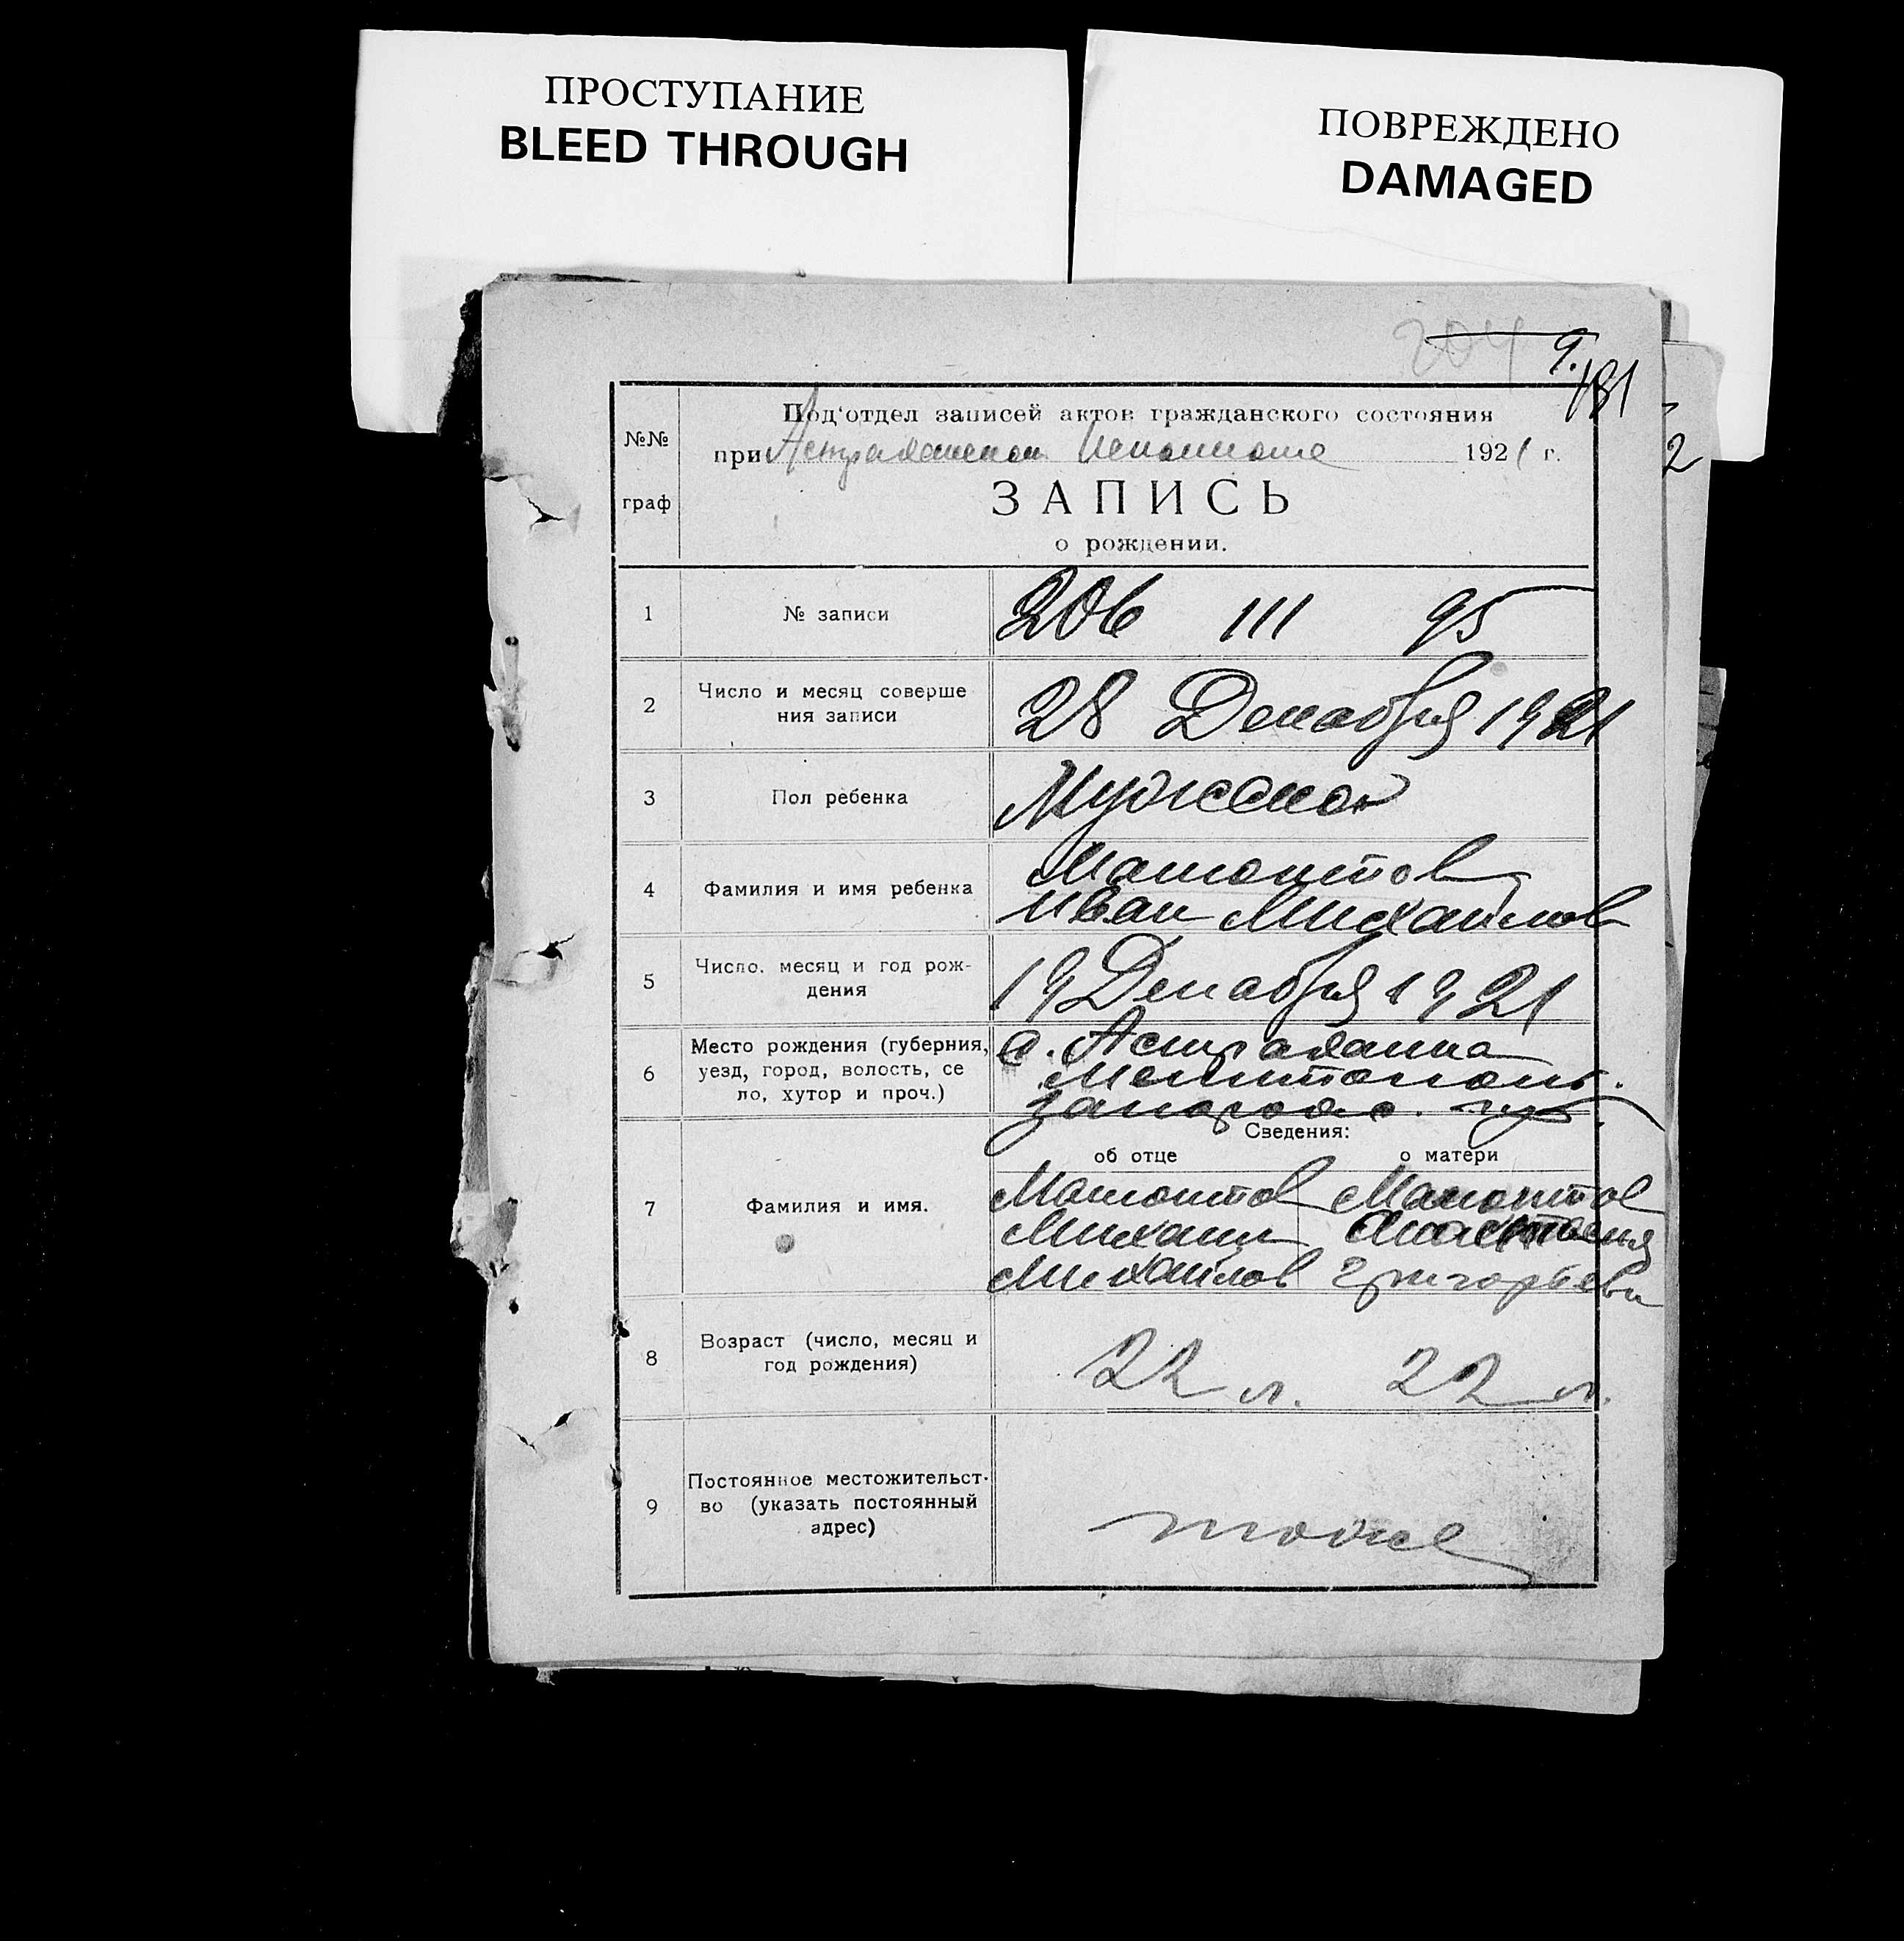 ПРОСТУПАНИЕ
BLEED THROUGH
ПОВРЕЖДЕНО
DAMAGED
204 9.
181
2
№№
граф
Под'отдел записей актов гражданского состояния
при Астраханском Исполкоме 1921 г.
ЗАПИСЬ
о рождении.
1 № записи 206 III 95
2 Число и месяц соверше
ния записи
28 Декабря 1921
3 Пол ребенка Мужской
4 Фамилия и имя ребенка
Мамонтов
Иван Михайлов
5 Число. месяц и год рож-
дения
19 Декабря 1921
6 Место рождения (губерния,
уезд, город, волость, се
ло, хутор и проч.)
с. Астраханка
Мелитополь.
Запорож. губ.
Сведения:
об отце о матери
7 Фамилия и имя.
Мамонтов Мамонтов
Михаил Анастасия
Михайлов Григорьева
8 Возраст (число, месяц и
год рождения)
22 л. 22 л.
9 Постоянное местожительст-
во (указать постоянный
адрес)
тоже